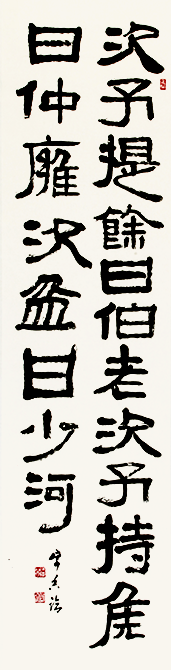 次子提餘曰伯老次子持侯
曰仲廱次盆曰少河